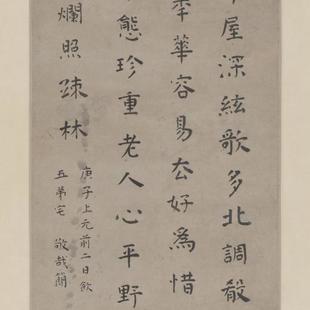 屋深絃歌多北調殽
秊華容易厺好爲惜
態珍重老人心平野
爛照疎林
庚子上元前二日飲
五弟宅 敬哉簡